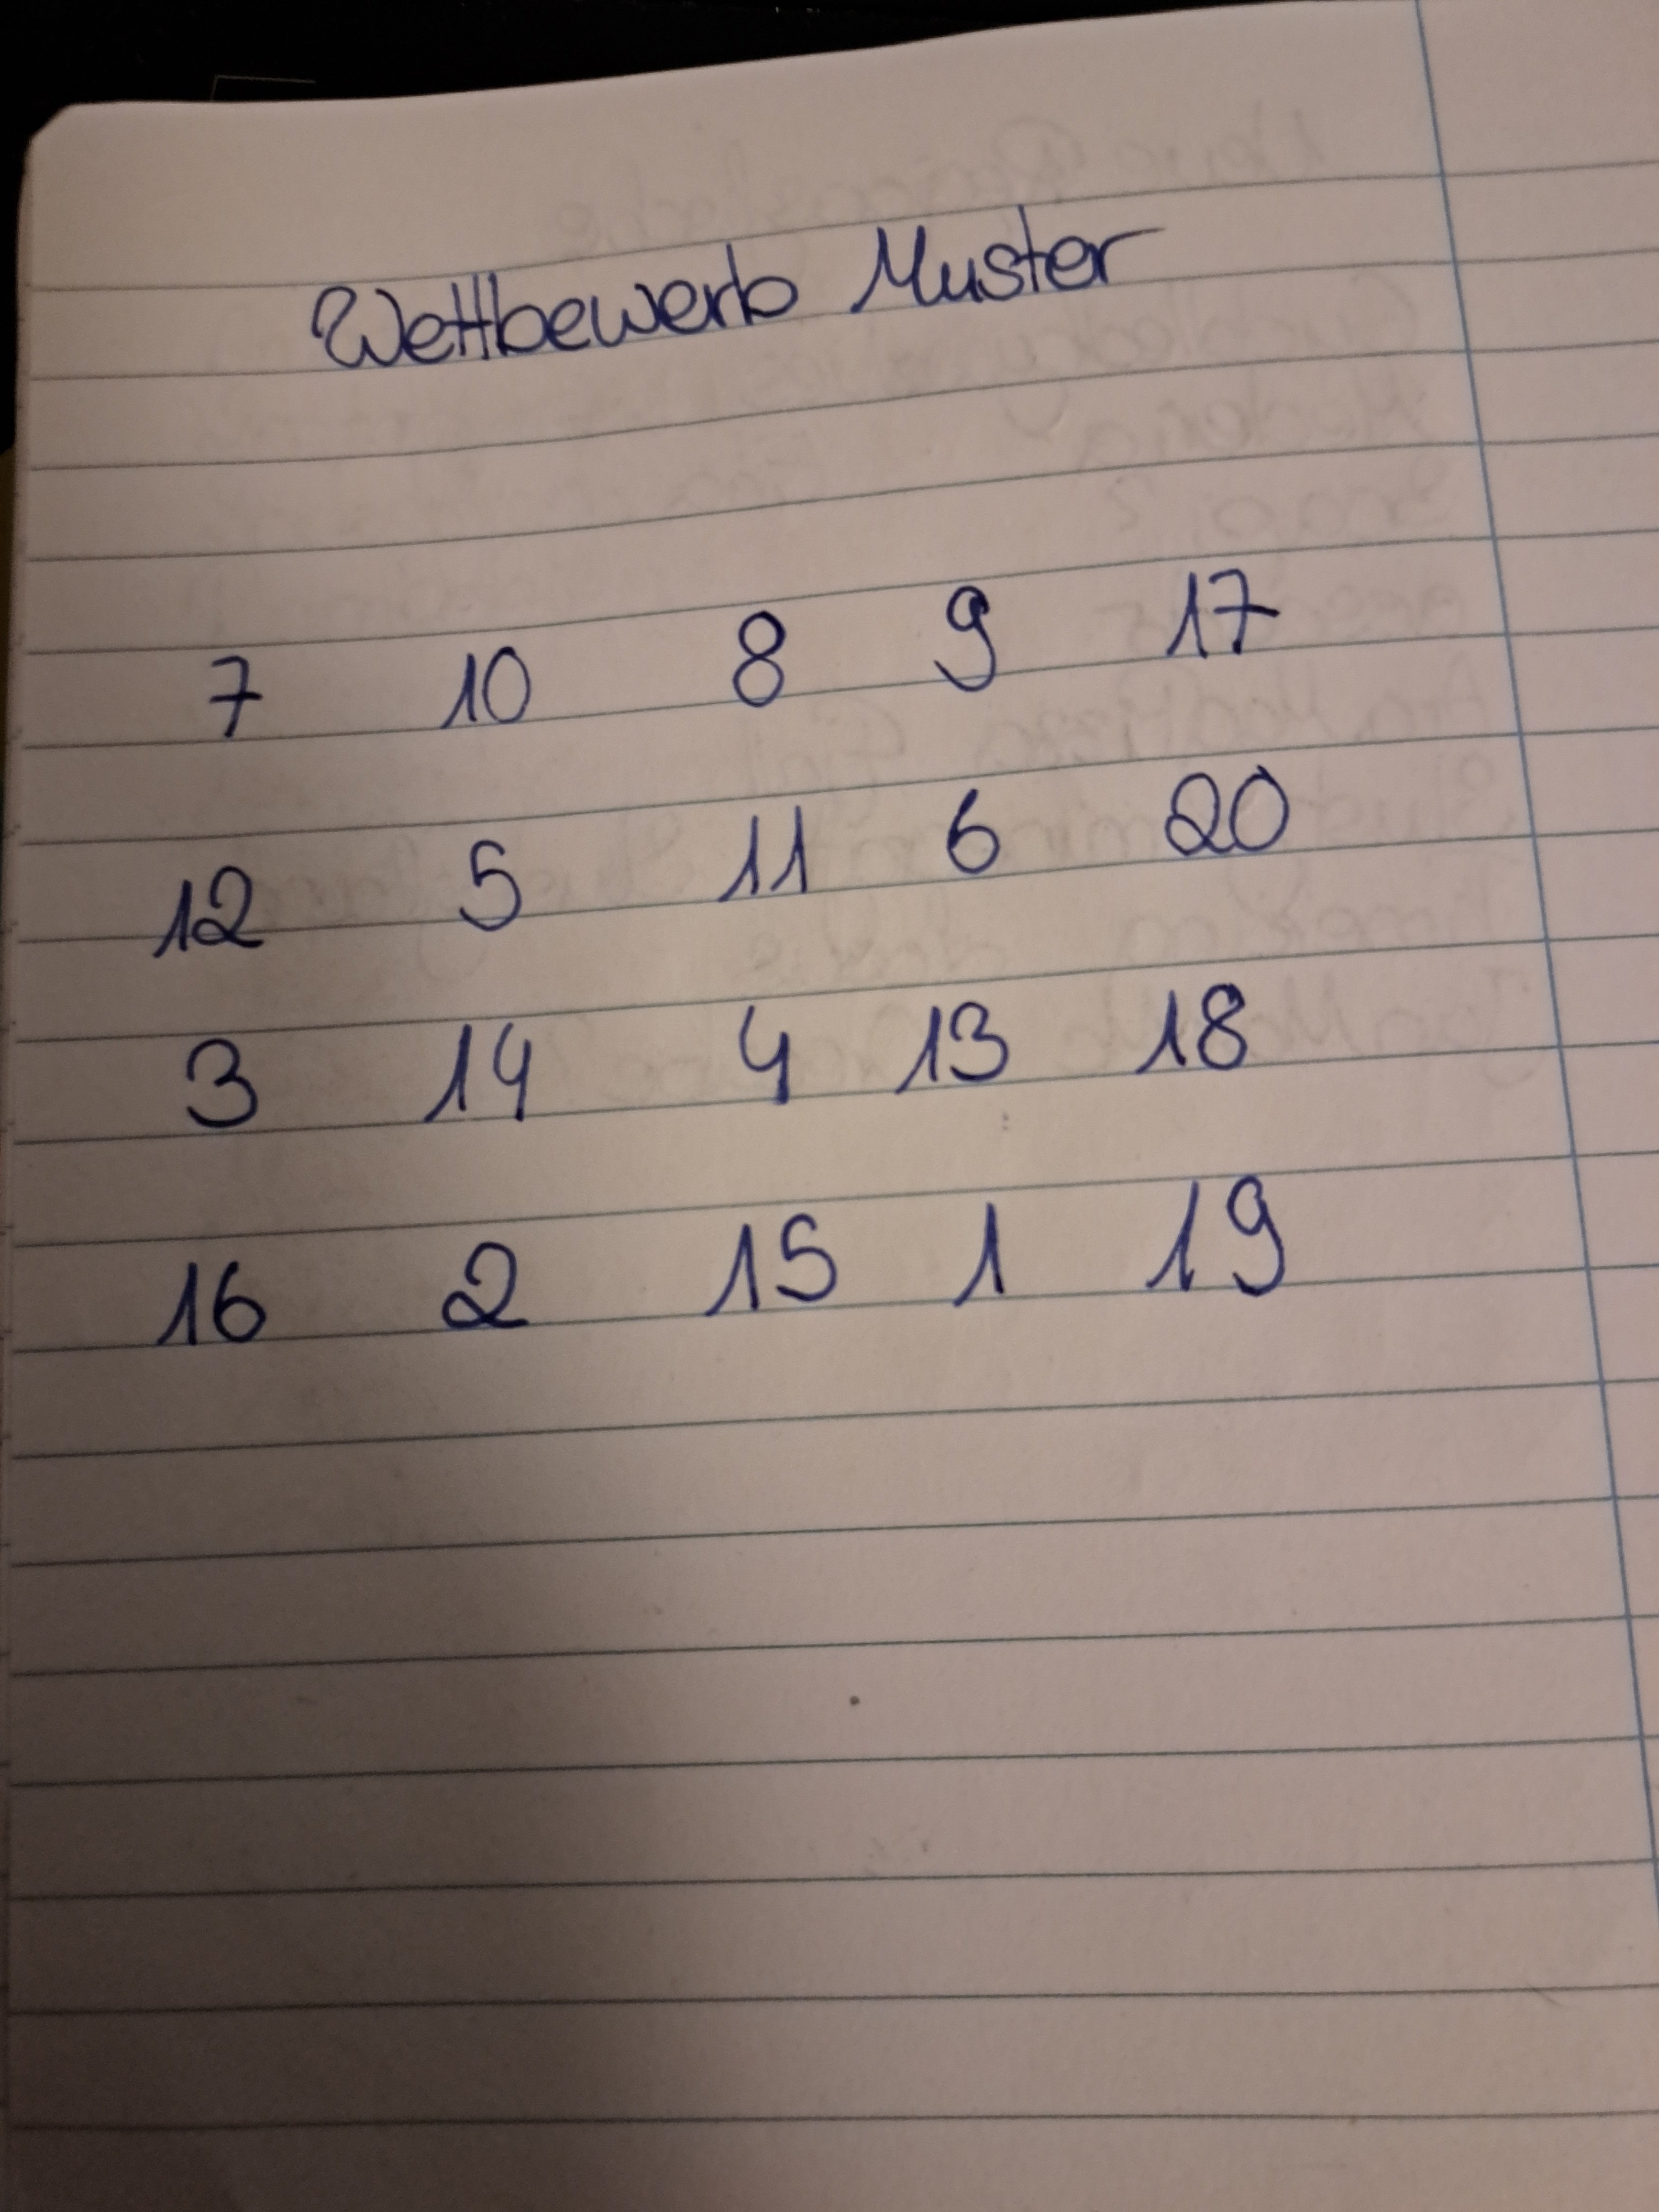 Wettbewerb Muster
7 10 8 9 17
12 5 11 6 20
3 14 4 13 18
16 2 15 1 19